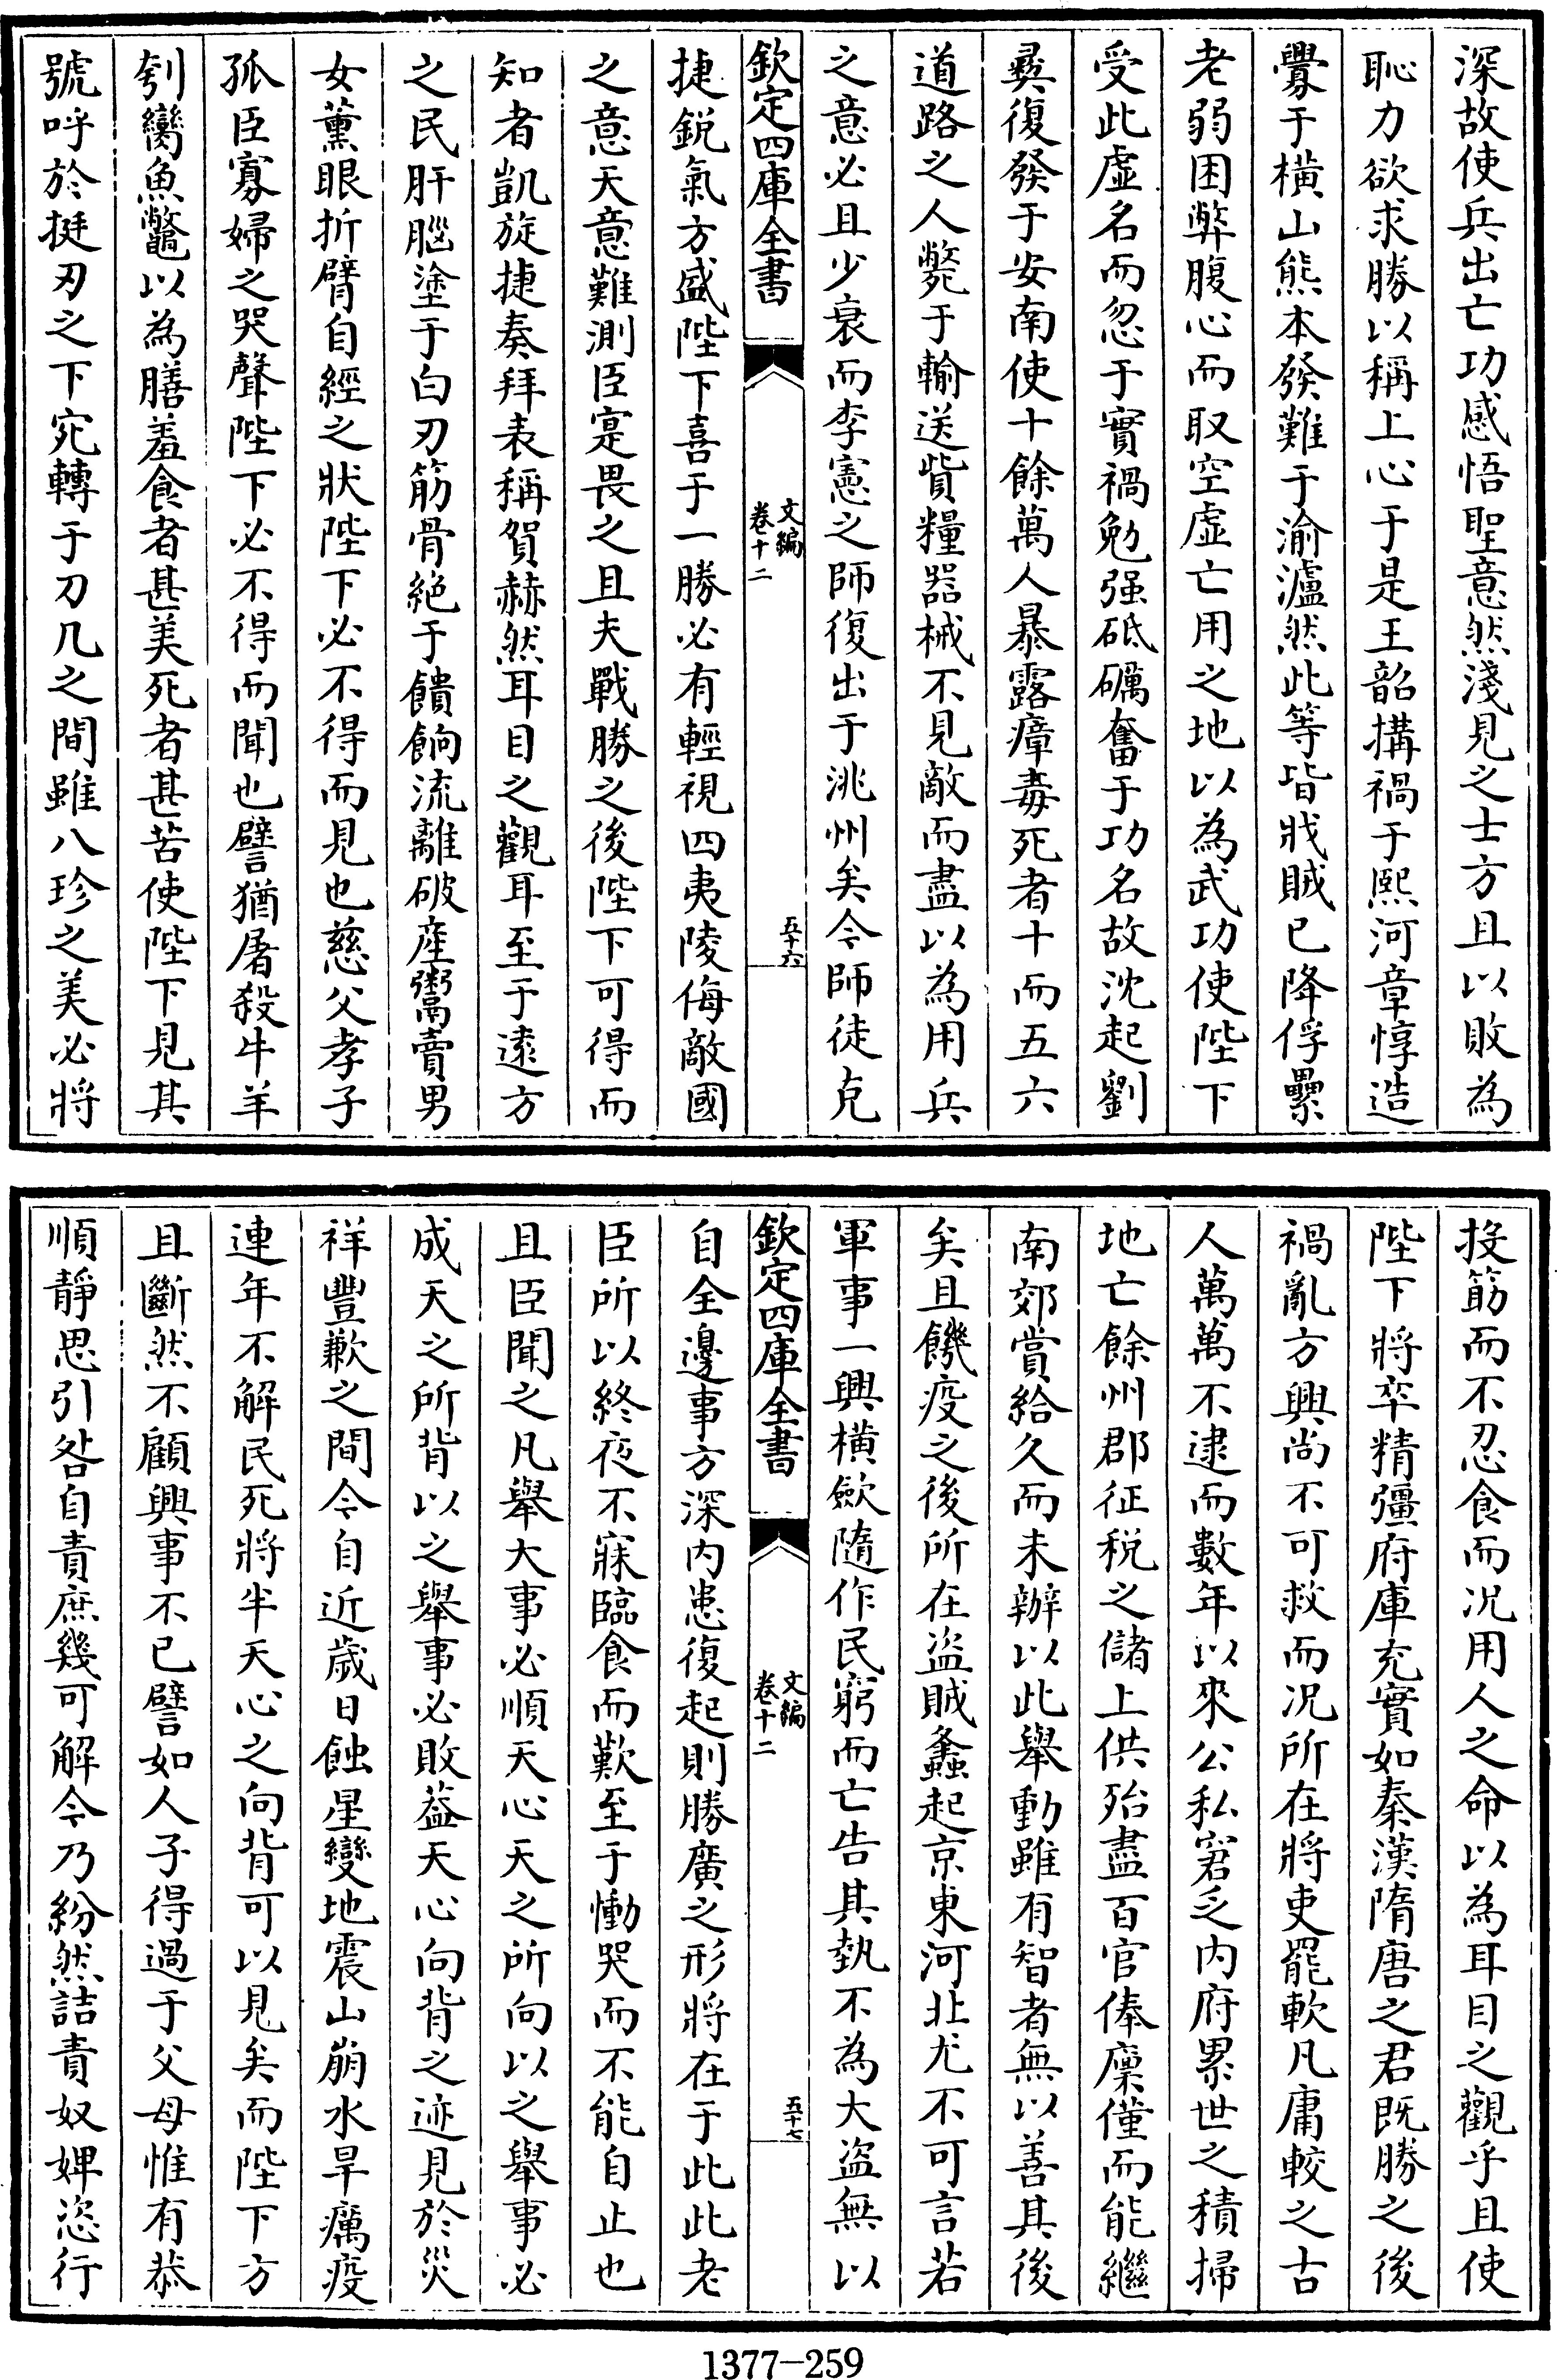 深故使兵出亡功感悟聖意然淺見之士方且以敗為
恥力欲求勝以稱上心于是王韶搆禍于熙河章惇造
釁于橫山熊本發難于渝瀘然此等皆戕賊已降俘纍
老弱困弊腹心而取空虛亡用之地以為武功使陛下
受此虛名而忽于實禍勉强砥礪奮于功名故沈起劉
彛復發于安南使十餘萬人暴露瘴毒死者十而五六
道路之人斃于輸送貲糧器械不見敵而盡以為用兵
之意必且少衰而李憲之師復出于洮州矣今師徒克
欽定四庫全書
文編
卷十二
五十六
捷鋭氣方盛陛下喜于一勝必有輕視四夷陵侮敵國
之意天意難測臣寔畏之且夫戰勝之後陛下可得而
知者凱旋捷奏拜表稱賀赫然耳目之觀耳至于遠方
之民肝腦塗于白刃筋骨絶于饋餉流離破産鬻賣男
女薰眼折臂自經之狀陛下必不得而見也慈父孝子
孤臣寡婦之哭聲陛下必不得而聞也譬猶屠殺牛羊
刳臠魚鼈以為膳羞食者甚美死者甚苦使陛下見其
號呼於挺刃之下宛轉于刀几之間雖八珍之美必將
投筯而不忍食而况用人之命以為耳目之觀乎且使
陛下將卒精彊府庫充實如秦漢隋唐之君既勝之後
禍亂方興尚不可救而况所在將吏罷軟凡庸較之古
人萬萬不逮而數年以來公私窘乏内府累世之積掃
地亡餘州郡征税之儲上供殆盡百官俸廩僅而能繼
南郊賞給久而未辦以此舉動雖有智者無以善其後
矣且饑疫之後所在盜賊蠭起京東河北尤不可言若
軍事一興橫歛隨作民窮而亡告其埶不為大盜無以
欽定四庫全書
文編
卷十二
五十七
自全邊事方深内患復起則勝廣之形將在于此此老
臣所以終夜不寐臨食而歎至于慟哭而不能自止也
且臣聞之凡舉大事必順天心天之所向以之舉事必
成天之所背以之舉事必敗葢天心向背之迹見於災
祥豐歉之間今自近歲日蝕星變地震山崩水旱癘疫
連年不解民死將半天心之向背可以見矣而陛下方
且斷然不顧興事不已譬如人子得過于父母惟有恭
順靜思引咎自責庶幾可解今乃紛然詰責奴婢恣行
1377-259